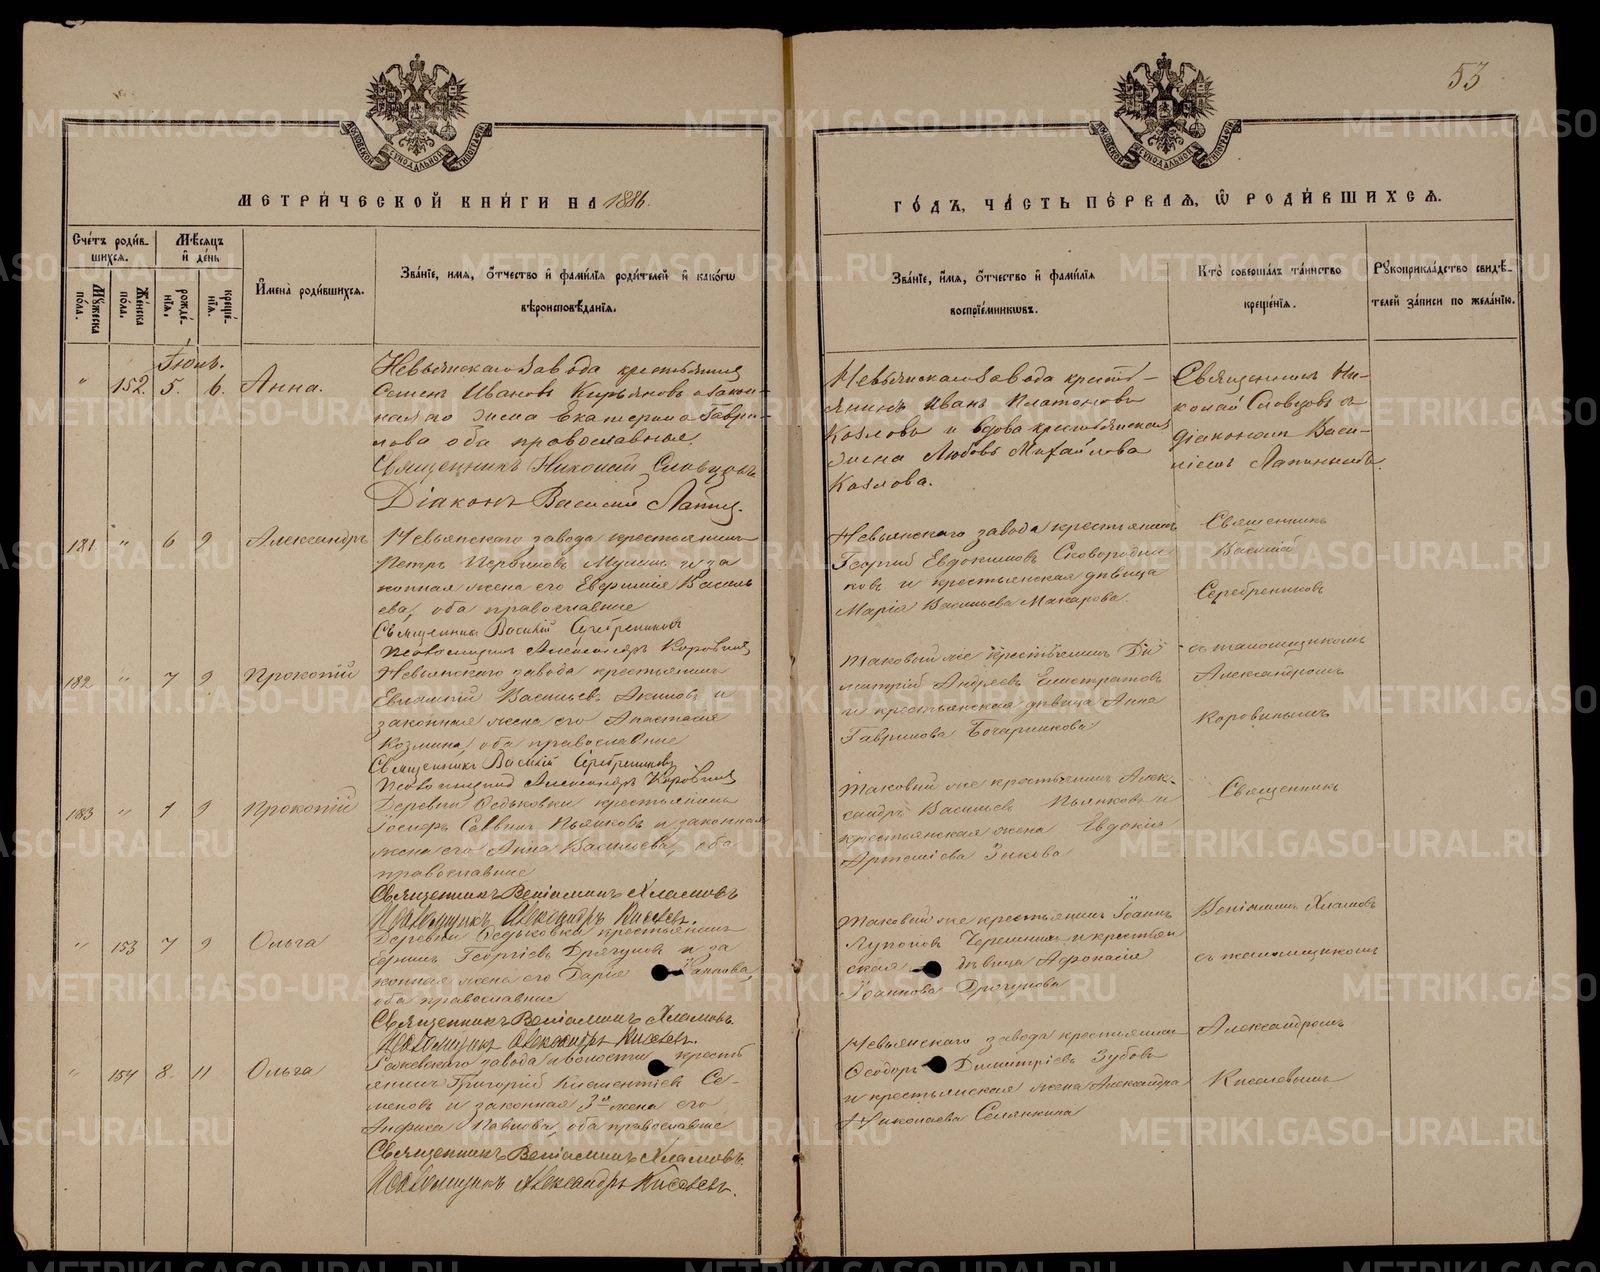 53
МОСКОВСКОЙ СѴНОДАЛЬНОЙ ТИПОГРАФІИ
МОСКОВСКОЙ СѴНОДАЛЬНОЙ ТИПОГРАФІИ
МЕТРИ́ЧЕСКОЙ КНИ́ГИ НА 1886.
ГО́ДЪ, ЧА́СТЬ ПЕ́РВАЯ, Ѡ РОДИ́ВШИХСЯ.
Сче́тъ роди́в-
шихся.
Мѣ́сяцъ
и де́нь
Му́жеска
по́ла.
Же́нска
по́ла.
рожде́-
нія.
креще́-
нія.
И҆мена̀ роди́вшихся.
Зва́ніе, имя, о҆́тчество и҆ фами́лія роди́телей и҆ како́гѡ
вѣроисповѣ́данія.
Зва́ніе, и҆́мя, о҆́тчество и҆ фами́лія
воспріе́мниковъ.
Кто̀ соверша́лъ та́инство
креще́нія.
Рꙋкоприкла́дство свидѣ́-
телей за́писи по жела́нію.
Іюнь.
" 152. 5. 6. Анна.
Невьянскаго завода крестьянинъ
Семенъ Ивановъ Кирьяновъ и закон-
ная его жена Екатерина Гаври-
лова оба православныя.
Священникъ Николай Словцовъ
Діаконъ Василій Лапинъ.
Невьянскаго завода кресть-
янинъ Иванъ Платоновъ
Козловъ и вдова крестьянская
жена Любовь Михайлова
Козлова.
Священникъ Ни-
колай Словцовъ съ
діакономъ Васи-
ліемъ Лапинымъ.
181 " 6 9 Александръ
Невьянскаго завода крестьянинъ
Петръ
законная жена его Евфимія Василь
ева, оба православные
Священникъ Василій Серебрениковъ
Псаломщикъ Александръ Коровинъ
Невьянскаго завода крестьянинъ
Георгій Евдокимовъ Сковородни
ковъ и крестьянская дѣвица
Марія Васильева Макарова.
Священникъ
Василій
Серебрениковъ
182 " 7 9 Прокопій
Невьянскаго завода крестьянинъ
Евлампій Васильевъ Акиловъ и
законная жена его Анастасія
Козмина, оба православные
Священникъ Василій Серебрениковъ
Псаломщикъ Александръ Коровинъ
Таковый же крестьянинъ Ди
митрій Андреевъ Елистратовъ
и крестьянская дѣвица Анна
Гаврилова Бочарникова
съ псаломщикомъ
Александромъ
Коровинымъ
183 " 7 9 Прокопій
Деревни Ѳедьковки крестьянинъ
Іосифъ Саввинъ Пьянковъ и законная
жена его Анна Васильева, оба
православные
Священникъ Веніаминъ Хламовъ
Псаломщикъ Александръ Киселевъ.
Таковый же крестьянинъ Алек-
сандръ Васильевъ Пьянковъ и
крестьянская жена Евдокія
Артеміева Зыкова
Священникъ
" 153 7 9 Ольга
Деревни Ѳедьковка крестьянинъ
Георгіевъ Драгуновъ и за
конная жена его Дарія Карпова,
оба православные
Священникъ Веніаминъ Хламовъ.
Псаломщикъ Александръ Киселевъ.
Таковый же крестьянинъ Іоаннъ
и крестьян
ская дѣвица Афанасія
Іоаннова Драгунова
Веніаминъ Хламовъ
съ псаломщикомъ
" 154 8. 11 Ольга
завода и волости кресть
янинъ Григорій Климентіевъ Се-
меновъ и законная 3я жена его
Анфиса Павлова, оба православные
Священникъ Веніаминъ Хламовъ.
Псаломщикъ Александръ Киселевъ.
Невьянскаго завода крестьянинъ
Ѳеодоръ Димитріевъ Зубовъ
и крестьянская жена Александра
Николаева Селянкина
Александромъ
Киселевымъ